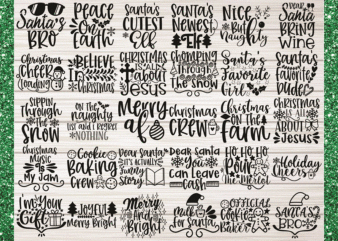 Santa's
BRO
PEACE
On
EARTH
Santa's
CUTEST
Elf
SANTA'S
NEWEST
ELF
Nice
Naughty
DEAR
Santa
BRING
WINE
Christmas
CHEER
Loading
BELIEVE
IN
CHRISTMAS
CHRISTMAS
IS ALL
ABOUT
Jesus
CHOMPING
THROUGH
THE
snow
Santa's
Favorite
Girl
Santa's
FAVORITE
DUDE
SIPPIN
THROUGH
THE
SNOW
ON THE
naughty
LIST AND I REGRET
NOTHING
Merry
CHRISTMAS
CREW
CHRISTMAS
ON THE
FARM
CHRISTMAS
IS ALL
ABOUT
JESUS
CHRISTMAS
MUSIC
IS MY
JAM
Cookie
BAKING
CREW
Dear Santa
IT'S ACTUALLY
A
FUNNY
STORY
DEAR SANTA
YOU
CAN LEAVE
CASH
HO HO HO
Holiday
CHEERS
I'm Your
Gift
JOYFUL
Merry Bright
MERRY
And
BRIGHT
Milk
FOR
SANTA
OFFICIAL
COOKIE
BAKER
SANTA'S
BRO